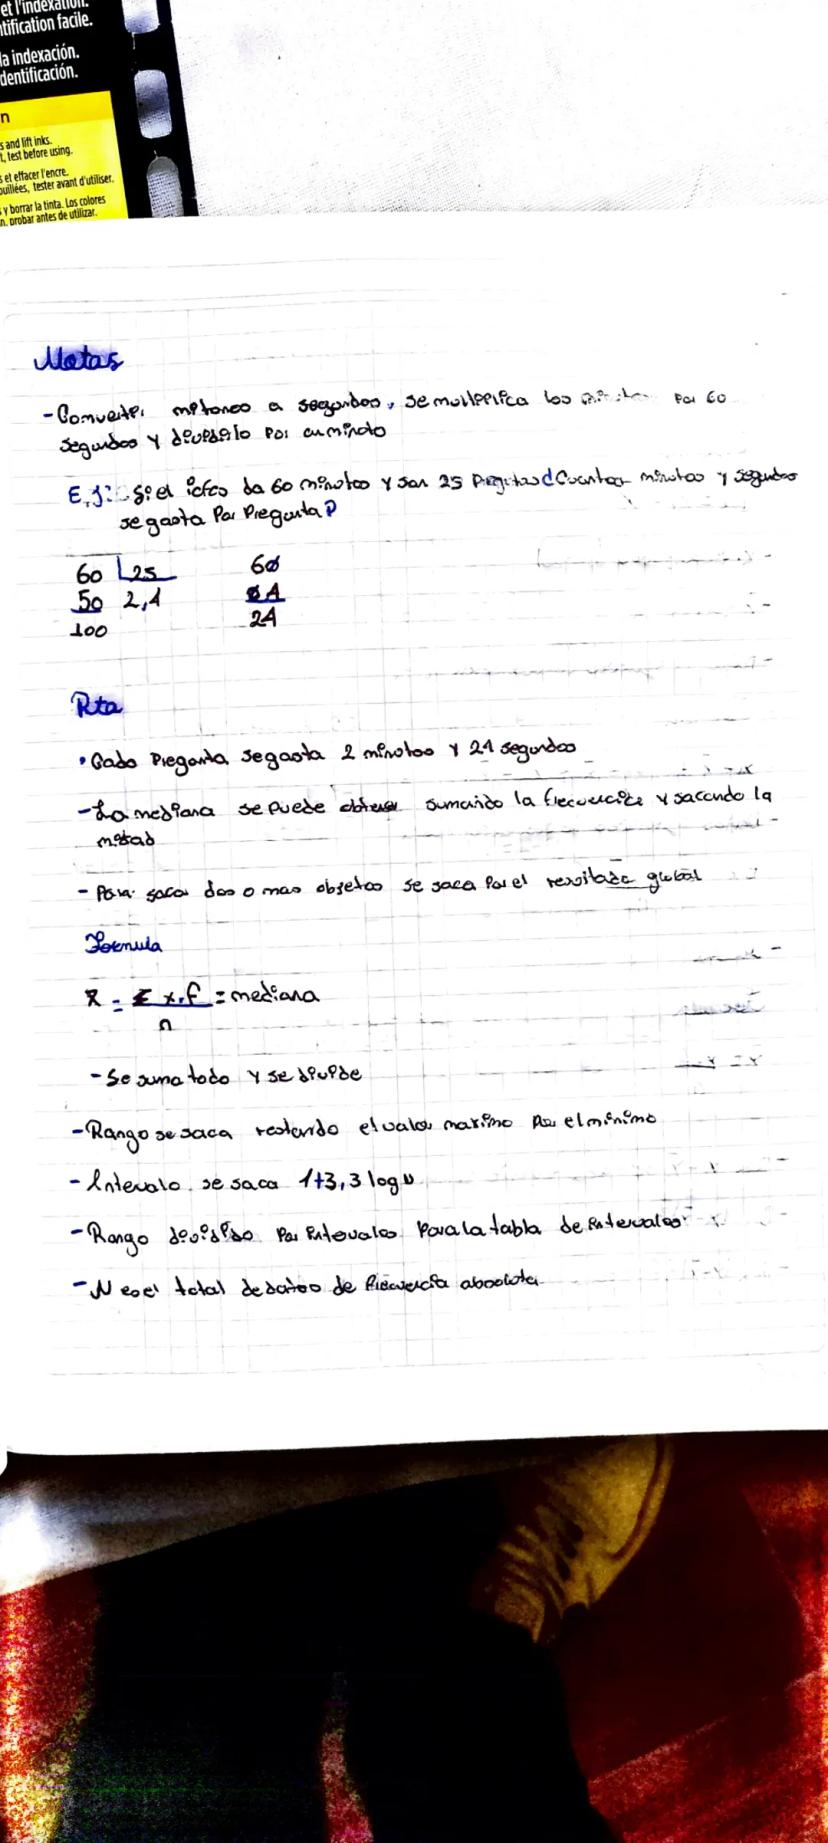 et l'indexation.
ntification facile.
la indexación.
dentificación.
n
s and lift inks.
t, test before using.
s et effacer l'encre.
ouillées, tester avant d'utiliser.
s y borrar la tinta. Los colores
n. probar antes de utilizar.
Notas
- Convertir minutos a segundos, se multiplica los Por 60
segundos y dividirlo Por un minuto
E.J: Si el icfes da 60 minutos y son 25 Preguntas ¿Cuantos minutos y segundos
se gasta Por Pregunta?
60 25 60
50 2,4
100 24
Rta
• Cada Pregunta se gasta 2 minutos y 24 segundos
- La mediana se puede obtener sumando la frecuencia y sacando la
mitad
- Para sacar dos o mas objetos se saca Por el resultado global
Formula
x̄ = Σ x.f = mediana
n
- Se suma todo y se divide
- Rango se saca restando el valor maximo Por el minimo
- Intervalo se saca 1+3,3 log N
- Rango dividido Por intervalos Para la tabla de intervalos
- N es el total de datos de frecuencia absoluta